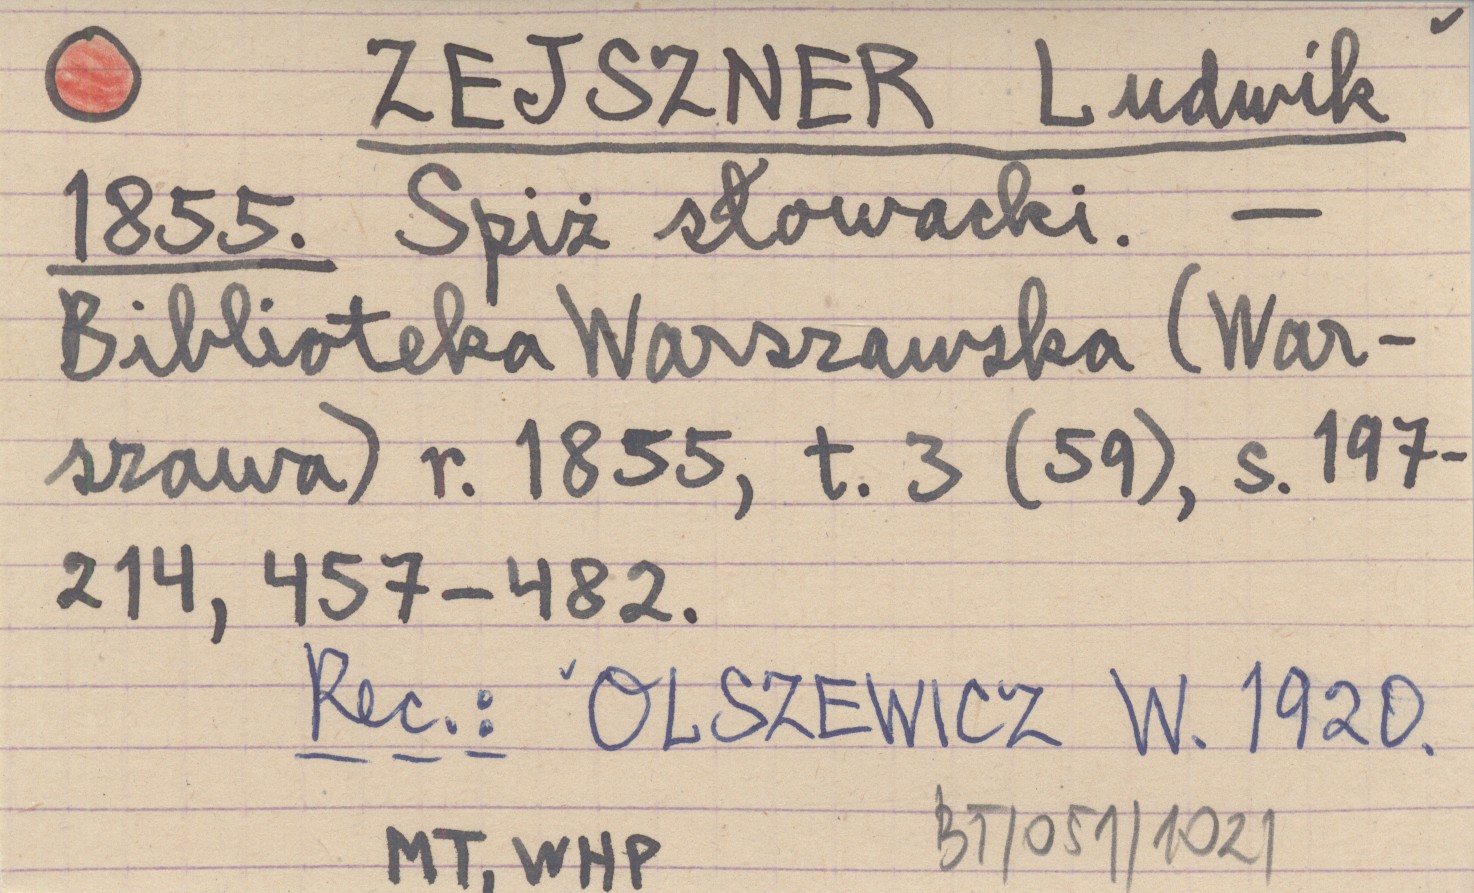 ZEJSZNER Ludwik
1855. Spiż słowacki. —
Biblioteka Warszawska (War-
szawa) r. 1855, t. 3 (59), s. 197-
214, 457-482.
Rec.: OLSZEWICZ W. 1920.
MT, WHP
BT/051/1021